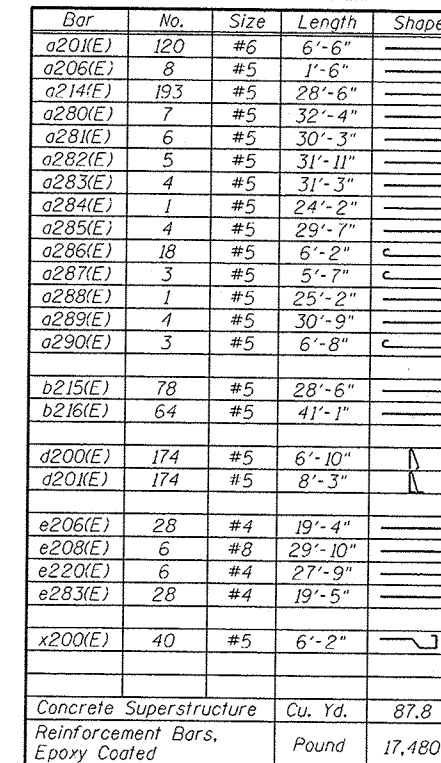 Bar No. Size Length Shape
a201(E) 120 #6 6'-6"
a206(E) 8 #5 1'-6"
a214(E) 193 #5 28'-6"
a280(E) 7 #5 32'-4"
a281(E) 6 #5 30'-3"
a282(E) 5 #5 31'-11"
a283(E) 4 #5 31'-3"
a284(E) 1 #5 24'-2"
a285(E) 4 #5 29'-7"
a286(E) 18 #5 6'-2"
a287(E) 3 #5 5'-7"
a288(E) 1 #5 25'-2"
a289(E) 4 #5 30'-9"
a290(E) 3 #5 6'-8"
b215(E) 78 #5 28'-6"
b216(E) 64 #5 41'-1"
d200(E) 174 #5 6'-10"
d201(E) 174 #5 8'-3"
e206(E) 28 #4 19'-4"
e208(E) 6 #8 29'-10"
e220(E) 6 #4 27'-9"
e283(E) 28 #4 19'-5"
x200(E) 40 #5 6'-2"
Concrete Superstructure Cu. Yd. 87.8
Reinforcement Bars,
Epoxy Coated Pound 17,480